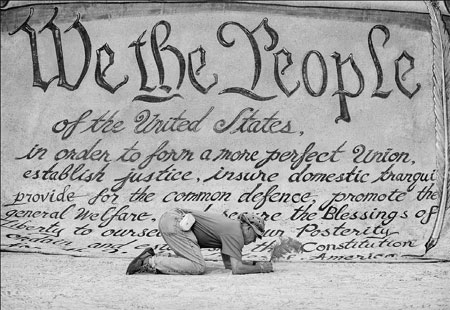 We the People
of the United States,
in order to form a more perfect Union,
establish justice, insure domestic tranqui
provide for the common defence, promote the
general Welfare, the Blessings of
liberty to ourse our Posterity
and Constitution
America.